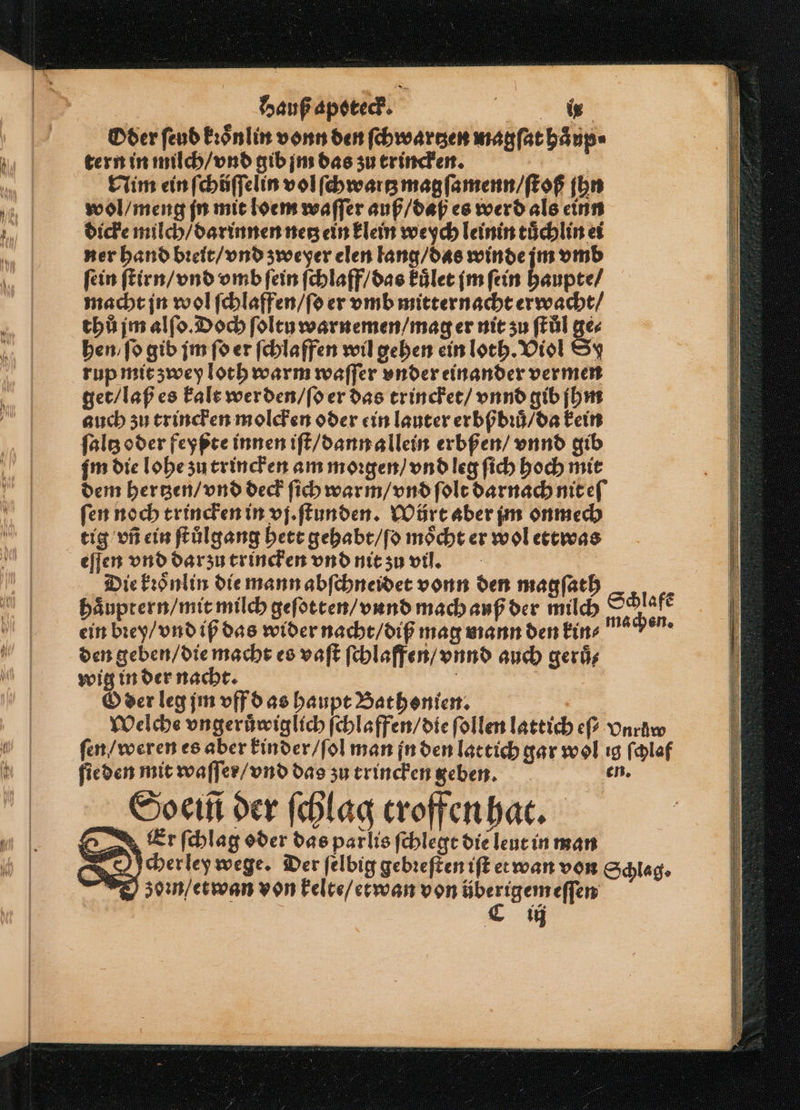 Hauß apoteck. ix
Oder ſeud kꝛoͤnlin vonn den ſchwartzen magſat haͤup⸗
tern in milch/vnd gib jm das zu trincken.
Nim ein ſchüſſelin vol ſchwartz magſamenn/ſtoß jhn
wol/meng jn mit loem waſſer auß/daß es werd als einn
dicke milch/darinnen netz ein klein weych leinin tuͤchlin ei
ner hand bꝛeit/vnd zweyer elen lang/das winde jm vmb
ſein ſtirn/vnd vmb ſein ſchlaff/das kuͤlet jm ſein haupte/
macht jn wol ſchlaffen/ſo er vmb mitternacht erwacht/
thuͦ jm alſo. Doch ſoltu warnemen/mag er nit zu ſtuͤl ge⸗
hen/ſo gib jm ſo er ſchlaffen wil gehen ein loth. Viol Sy
rup mit zwey loth warm waſſer vnder einander vermen
get/laß es kalt werden/ſo er das trincket/ vnnd gib jhm
auch zu trincken molcken oder ein lauter erbßbꝛuͤ/da kein
ſaltz oder feyßte innen iſt/dann allein erbßen/ vnnd gib
jm die lohe zu trincken am moꝛgen/ vnd leg ſich hoch mit
dem hertzen/vnd deck ſich warm/vnd ſolt darnach nit eſ
ſen noch trincken in vj. ſtunden. Würt aber jm onmech
tig vñ ein ſtuͤlgang hett gehabt/ſo moͤcht er wol ettwas
eſſen vnd darzu trincken vnd nit zu vil.
Die kꝛoͤnlin die mann abſchneidet vonn den magſath
haͤuptern/mit milch geſotten/vnnd mach auß der milch Schlaff
ein bꝛey/vnd iß das wider nacht/diß mag mann den kin⸗ machen.
den geben/die macht es vaſt ſchlaffen/vnnd auch geruͤ⸗
wig in der nacht.
Oder leg jm vff das haupt Bathonien.
Welche vngeruͤwiglich ſchlaffen/die ſollen lattich eſ⸗ Vnruͤw
ſen/weren es aber kinder/ſol man jn den lattich gar wol ig ſchlaf
ſieden mit waſſer/vnd das zu trincken geben. en.
So eiñ der ſchlag troffen hat.
Der ſchlag oder das parlis ſchlegt die leut in man
cherley wege. Der ſelbig gebꝛeſten iſt etwan von Schlag.
zoꝛn/etwan von kelte/etwan von überigem eſſen
C iij